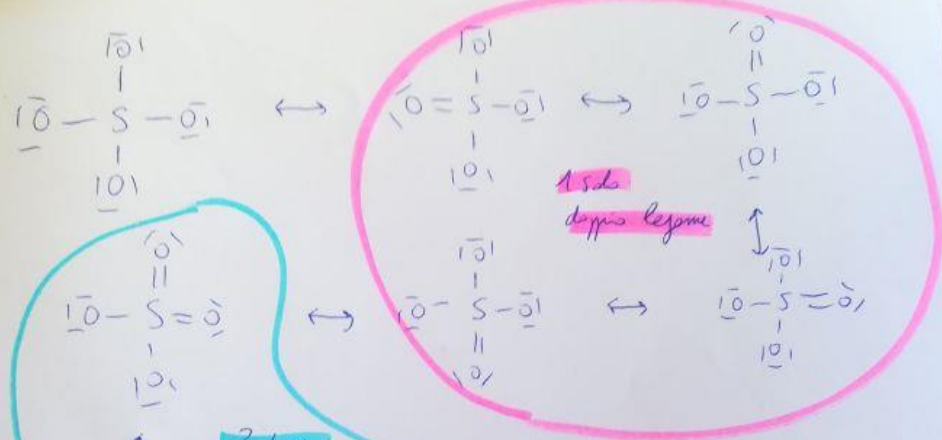 |O̅| |O̅| /O\
| | ||
|O̅ — S — O̅| ↔ \O̅ = S — O̅| ↔ |O̅ — S — O̅|
| | |
|O| |O| |O|
1 solo
doppio legame
↕
/O\ |O̅| |O̅|
|| | |
|O̅ — S = O ↔ |O̅ — S — O̅| ↔ |O̅ — S = O
| || |
|O| \O/ |O|